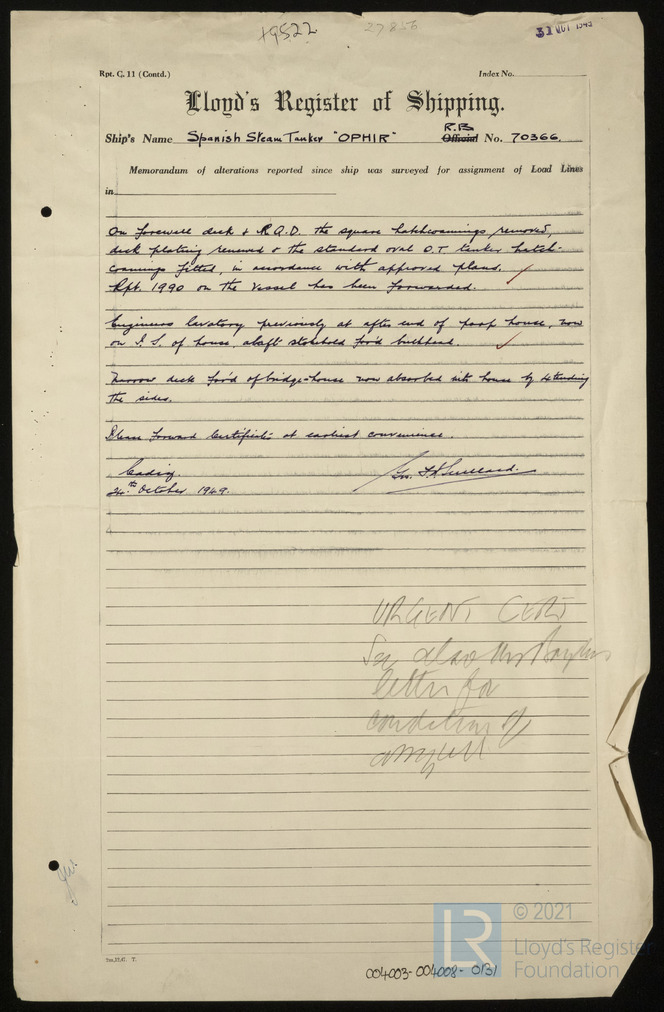 49522
27856
31 OCT 1949
Rpt. C. 11 (Contd.)
Index No.
Lloyd's Register of Shipping.
R.B
Ship's Name Spanish Steam Tanker "OPHIR" Official No. 70366.
Memorandum of alterations reported since ship was surveyed for assignment of Load Lines
in
On forewell deck & R.Q.D. the square hatchcoamings removed,
deck plating renewed & the standard oval O.T. tanker hatch-
coamings fitted, in accordance with approved plans.
Rpt. 1990 on the vessel has been forwarded.
Engineers lavatory previously at after end of poop house, now
on P.S. of house, abaft stokehold for'd bulkhead.
Narrow deck for'd of bridge-house now absorbed into house by extending
the sides.
Please forward Certificate at earliest convenience.
Cadiz.
24th October 1949.
URGENT CERT
See also
letter for
condition of
004003-004008-0131
© 2021
LR
Lloyd's Register
Foundation